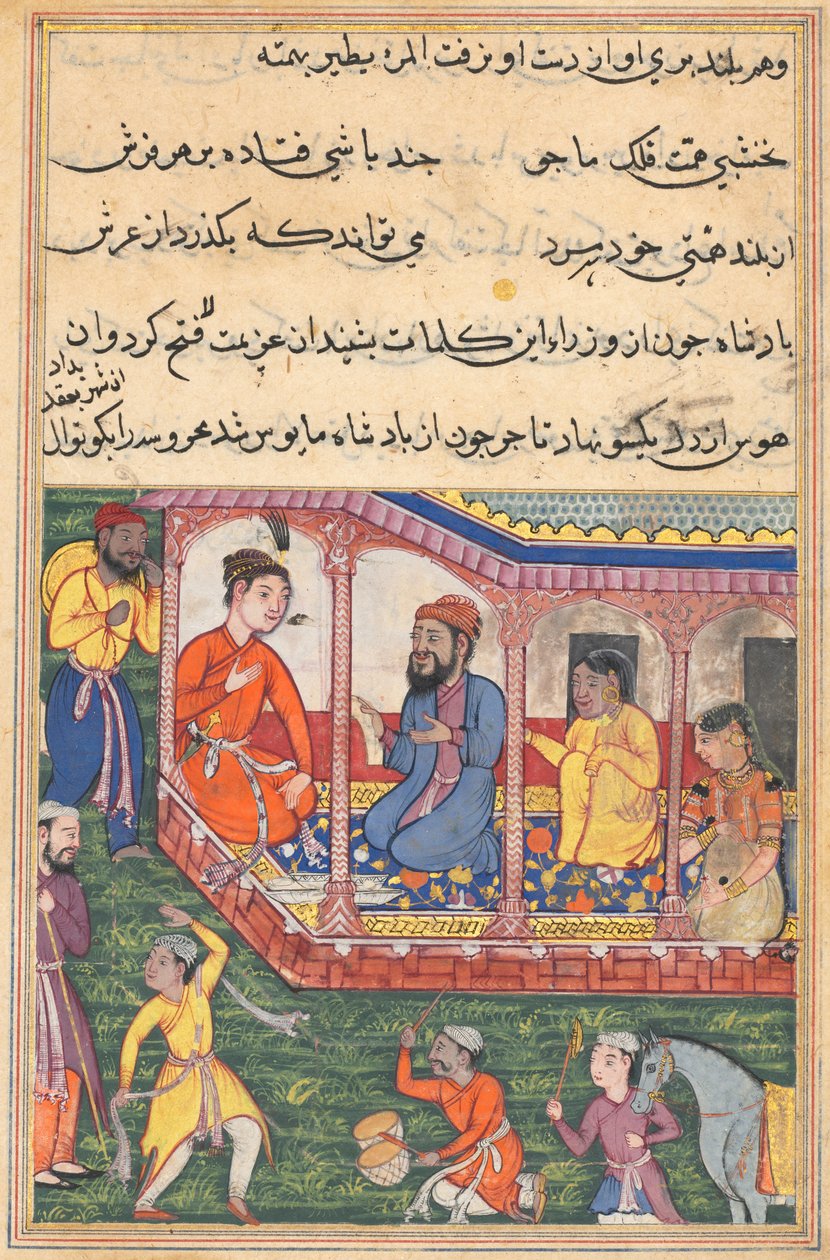 وهم بلند بري او از دست او نرفت المرء يطير بهمته
نخشبي همّت فلك ماجو جند باشي فتاده بر هر فرش
از بلند همّتي خود مرد مي تواند كه بكذرد از عرش
بادشاه جون از وزراء اين كلمات بشنيد ان عزيمت لا فتح كرد و ان
هوس از دل يكسو نهاد تاجر جون از بادشاه مايوس شد عروسد را بكوتوال
ان شهر بعقد
بداد